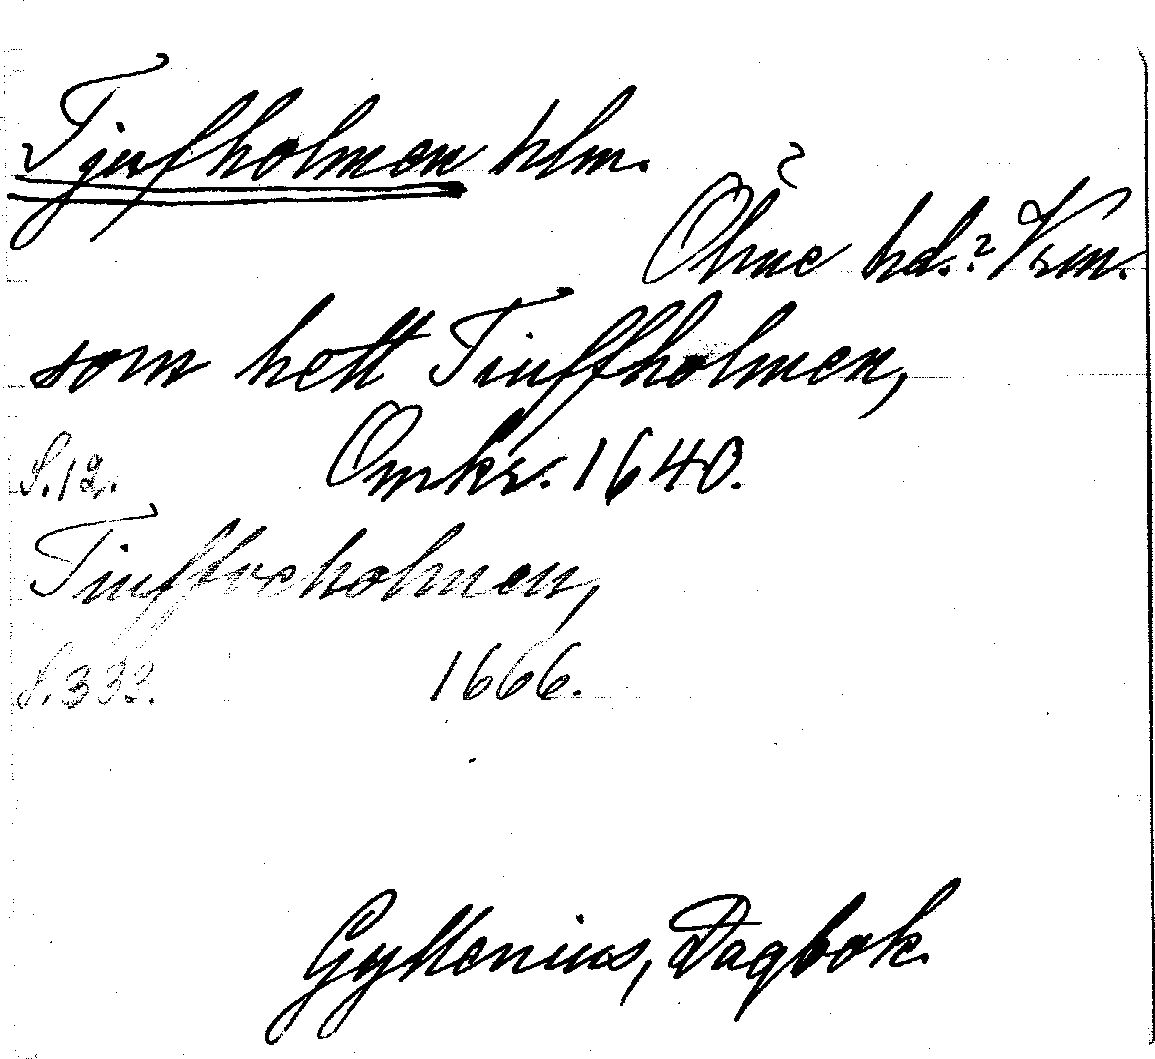 Tjufholmen hlm.
Ölme hd.? Vrm.
som hett Tiuffholmen,
S. 12. Omkr. 1640.
Tiuffveholmen,
S. 332. 1666.
Gyllenius, Dagbok.